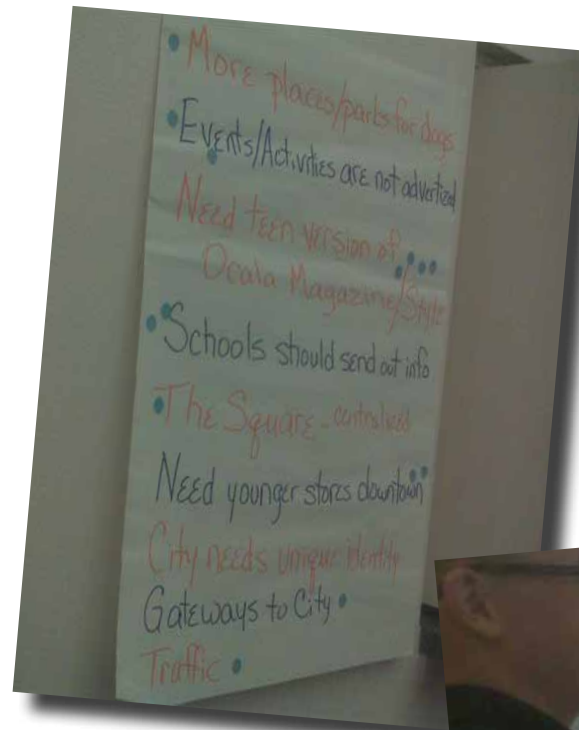 More places/parks for dogs
Events/Activities are not advertized
Need teen version of
Ocala Magazine/Style
Schools should send out info
The Square - centralized
Need younger stores downtown
City needs unique identity
Gateways to City
Traffic